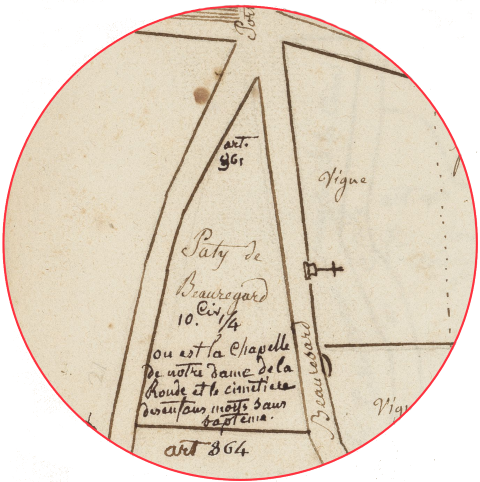 Por
art.
361
Vigne
Paty de
Beauregard
10. Civ. 1/4
ou est la Chapelle
de notre dame de la
Ronde et le cimetiere
desenfans morts sans
bapteme.
Beauregard
Vig
art 364